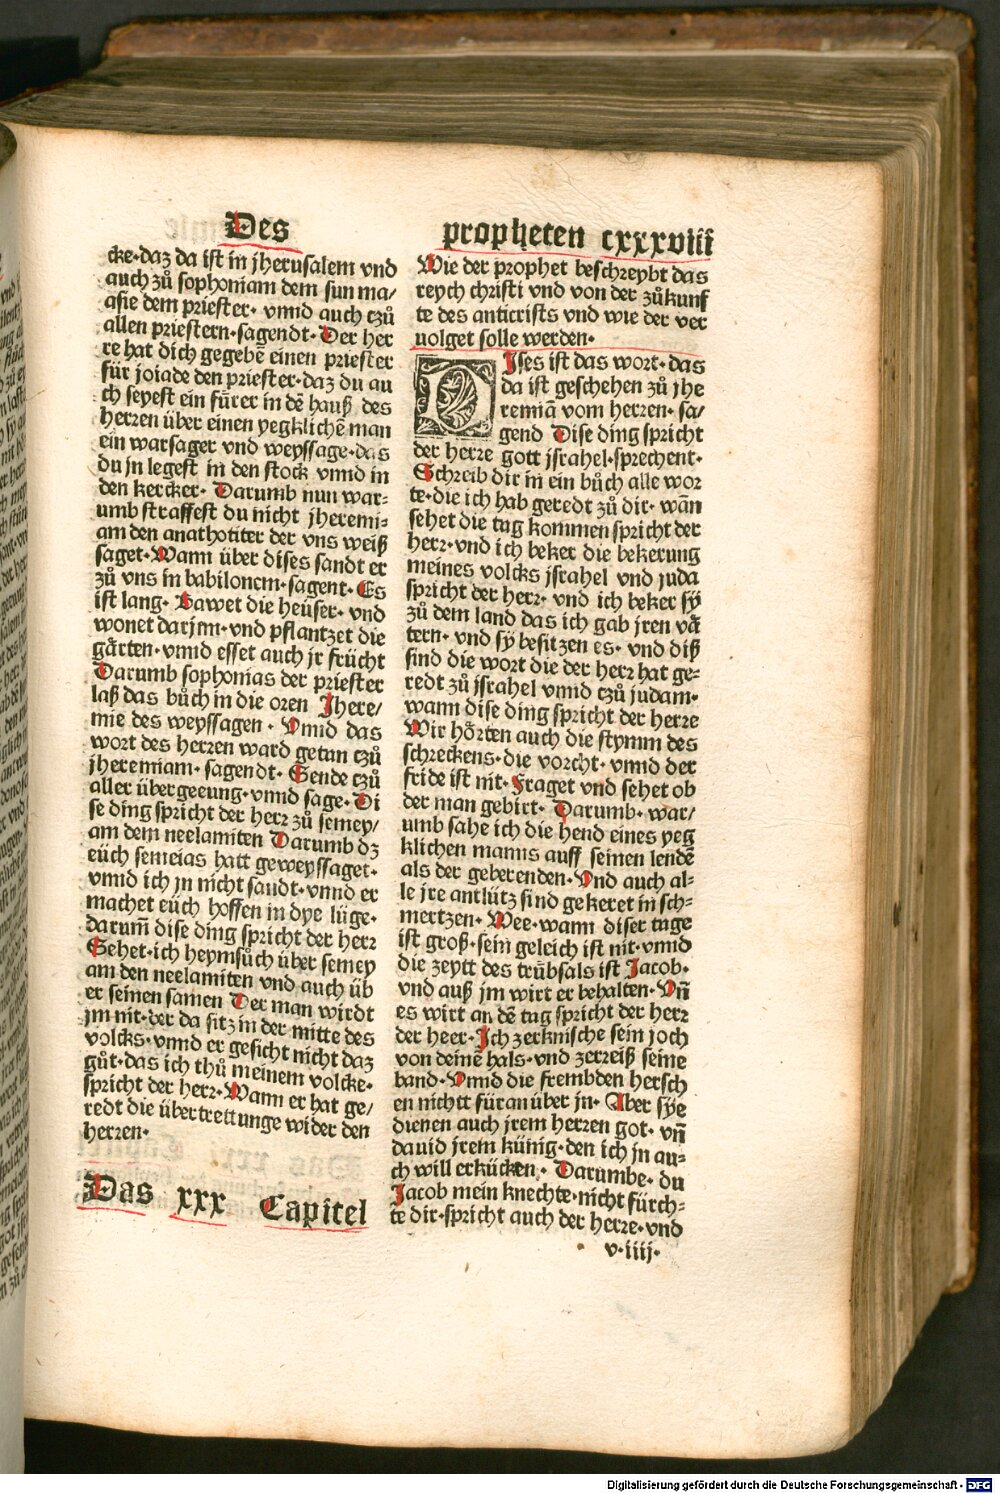 Des
cke·daz da ist in jherusalem vnd
auch zů sophoniam dem sun ma/
asie dem priester· vnnd auch czů
allen priestern·sagendt·Der her
re hat dich gegebē einen priester
für joiade den priester·daz du au
ch seyest ein fürer in dē hauß des
herzen über einen yegklichē man
ein warsager vnd weyssage·das
du jn legest in den stock vnnd in
den kercker· Darumb nun war⸗
umb straffest du nicht jheremi⸗
am den anathotiter der vns weiß
saget·Wann über dises sandt er
zů vns in babilonem·sagent· Es
ist lang· Bawet die heüser· vnd
wonet darjnn·vnd pflantzet die
gårten·vnnd esset auch jr frücht
Darumb sophonias der priester
laß das bůch in die oren Jhere/
mie des weyssagen· Vnnd das
wort des herren ward getan czů
jheremiam·sagendt·Sende czů
aller übergeeung·vnnd sage·Di
se ding spricht der herz zů semey/
am dem neelamiten Darumb dz
eüch semeias hatt geweyssaget·
vnnd ich jn nicht sandt·vnnd er
machet eüch hoffen in dye lüge·
darum̄ dise ding spricht der herz
Sehet·ich heymsůch über semey
am den neelamiten vnd auch üb
er seinen samen Der man wirdt
jm nit·der da sitz in der mitte des
volcks·vnnd er gesicht nicht daz
gůt·das ich thů meinem volcke·
spricht der herz·Wann er hat ge/
redt die übertrettunge wider den
herren·
Das xxx Capitel
propheten cxxxviii
Wie der prophet beschreybt das
reych christi vnd von der zůkunf
te des anticrists vnd wie der ver
uolget solle werden·
DIses ist das wort·das
da ist geschehen zů jhe
remiā vom herzen·sa/
gend Dise ding spricht
der herre gott jsrahel·sprechent·
Schreib dir in ein bůch alle wor
te·die ich hab geredt zů dir· wān
sehet die tag kommen spricht der
herz·vnd ich beker die bekerung
meines volcks jsrahel vnd juda
spricht der herz· vnd ich beker sÿ
zů dem land das ich gab jren vå
tern·vnd sÿ besitzen es· vnd diß
sind die wort die der herz hat ge⸗
redt zů jsrahel vnnd czů judam·
wann dise ding spricht der herre
Wir hörten auch die stymm des
schreckens·die vorcht·vnnd der
fride ist nit·Fraget vnd sehet ob
der man gebirt· Darumb· war/
umb sahe ich die hend eines yeg
klichen manns auff seinen lendē
als der geberenden·Vnd auch al⸗
le jre antlütz sind gekeret in sch⸗
mertzen·Wee·wann diser tage
ist groß·sein geleich ist nit·vnnd
die zeytt des trübsals ist Jacob·
vnd auß jm wirt er behalten·Vn̄
es wirt an dē tag spricht der herz
der heer·Ich zerknische sein joch
von deinē hals·vnd zerreiß seine
band·Vnnd die frembden hersch
en nichtt füran über jn· Aber sÿe
dienen auch jrem herzen got· vn̄
dauid jrem künig·den ich jn au⸗
ch will erkücken· Darumbe· du
Jacob mein knechte·nicht fürch⸗
te dir·spricht auch der herre·vnd
v·iiij·
Digitalisierung gefördert durch die Deutsche Forschungsgemeinschaft · DFG